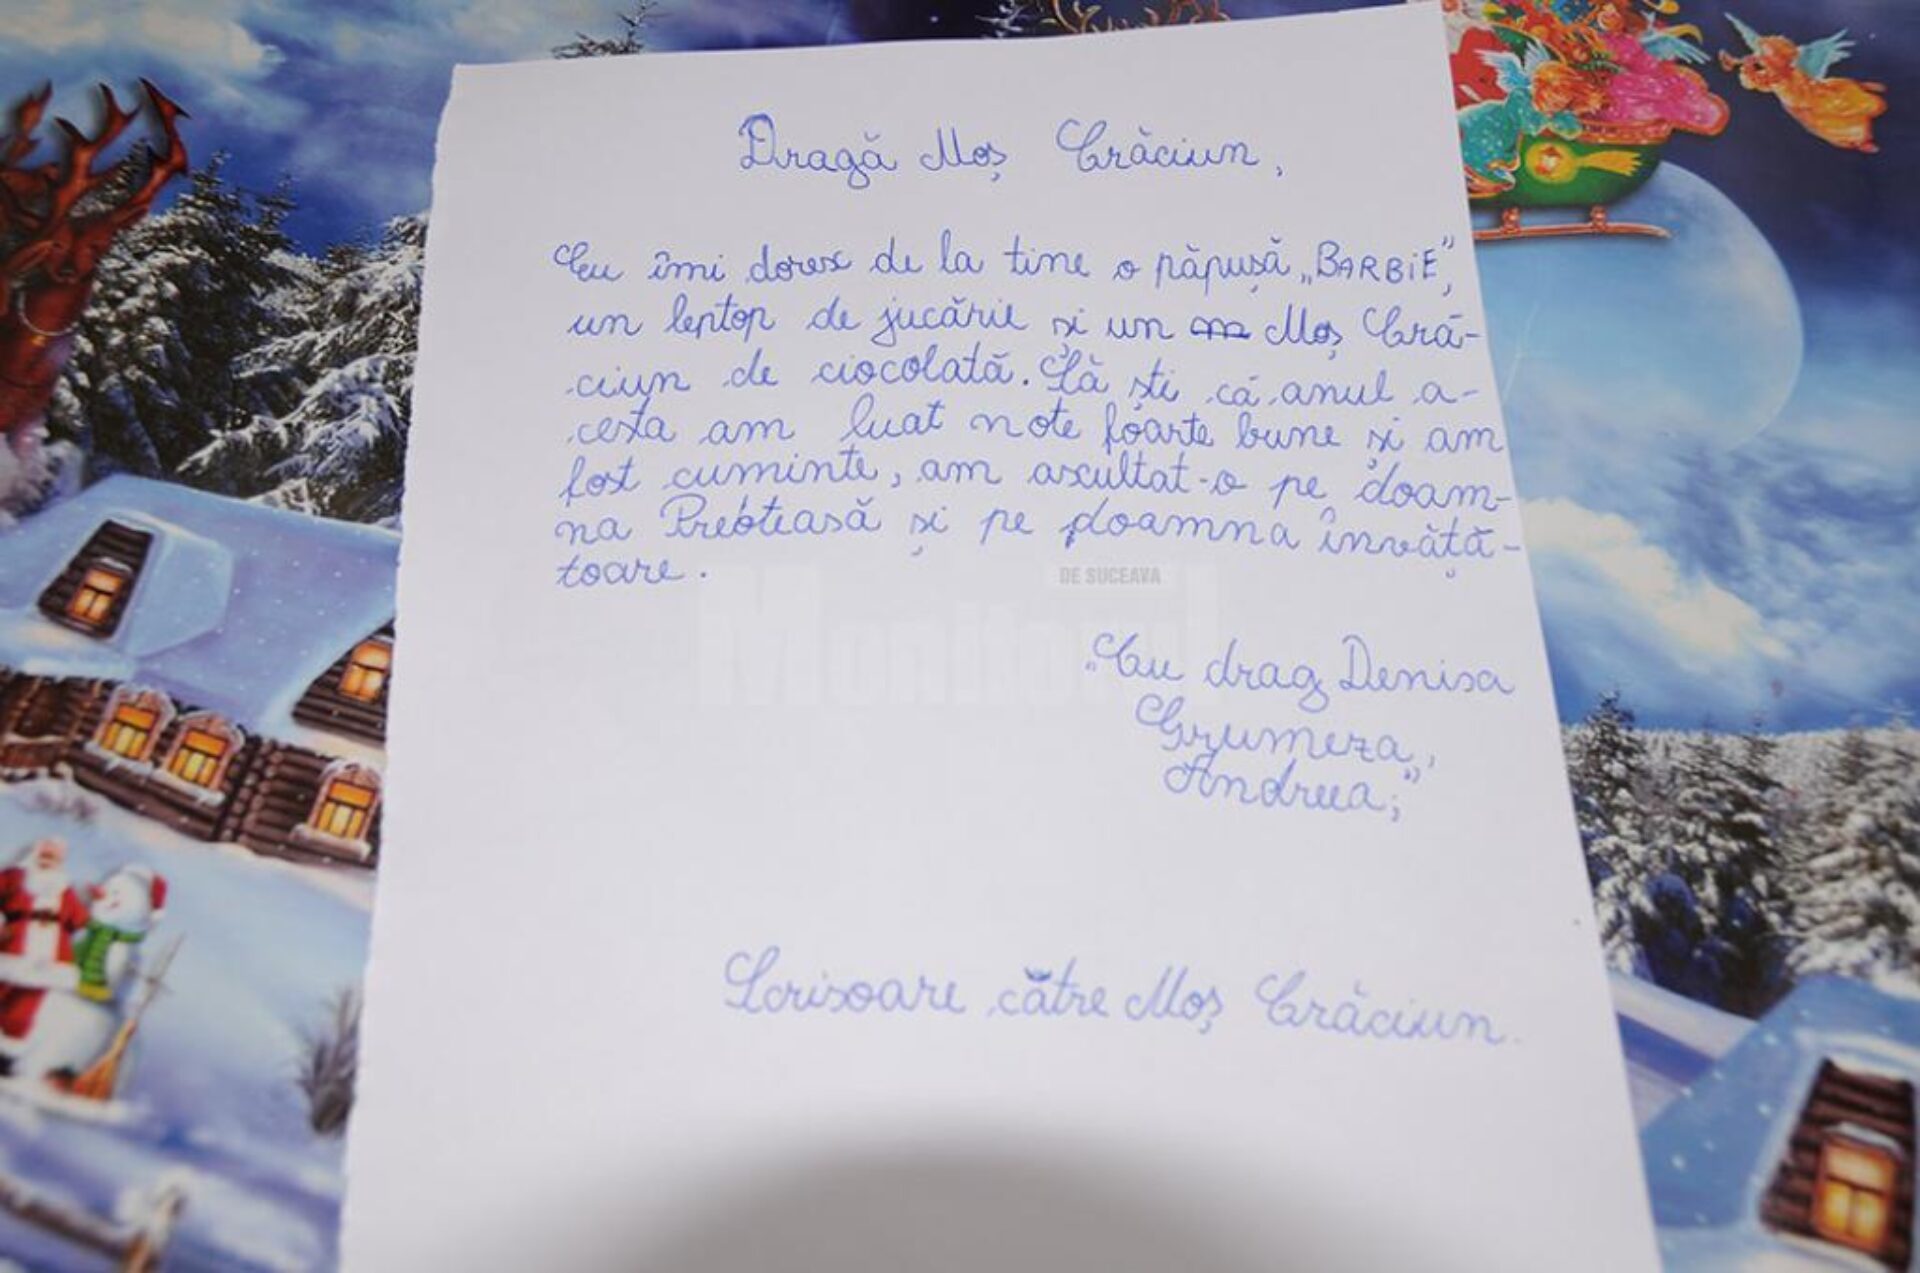 Dragă Moș Crăciun,
Eu îmi doresc de la tine o păpușă „BARBiE”,
un leptop de jucărie și un Moș Cră-
ciun de ciocolată. Să ști că anul a-
cesta am luat note foarte bune și am
fost cuminte, am ascultat-o pe doam-
na Preoteasă și pe doamna învăță-
toare.
DE SUCEAVA
Monitorul
„Cu drag Denisa
Grumeza,
Andreea;”
Scrisoare către Moș Crăciun.